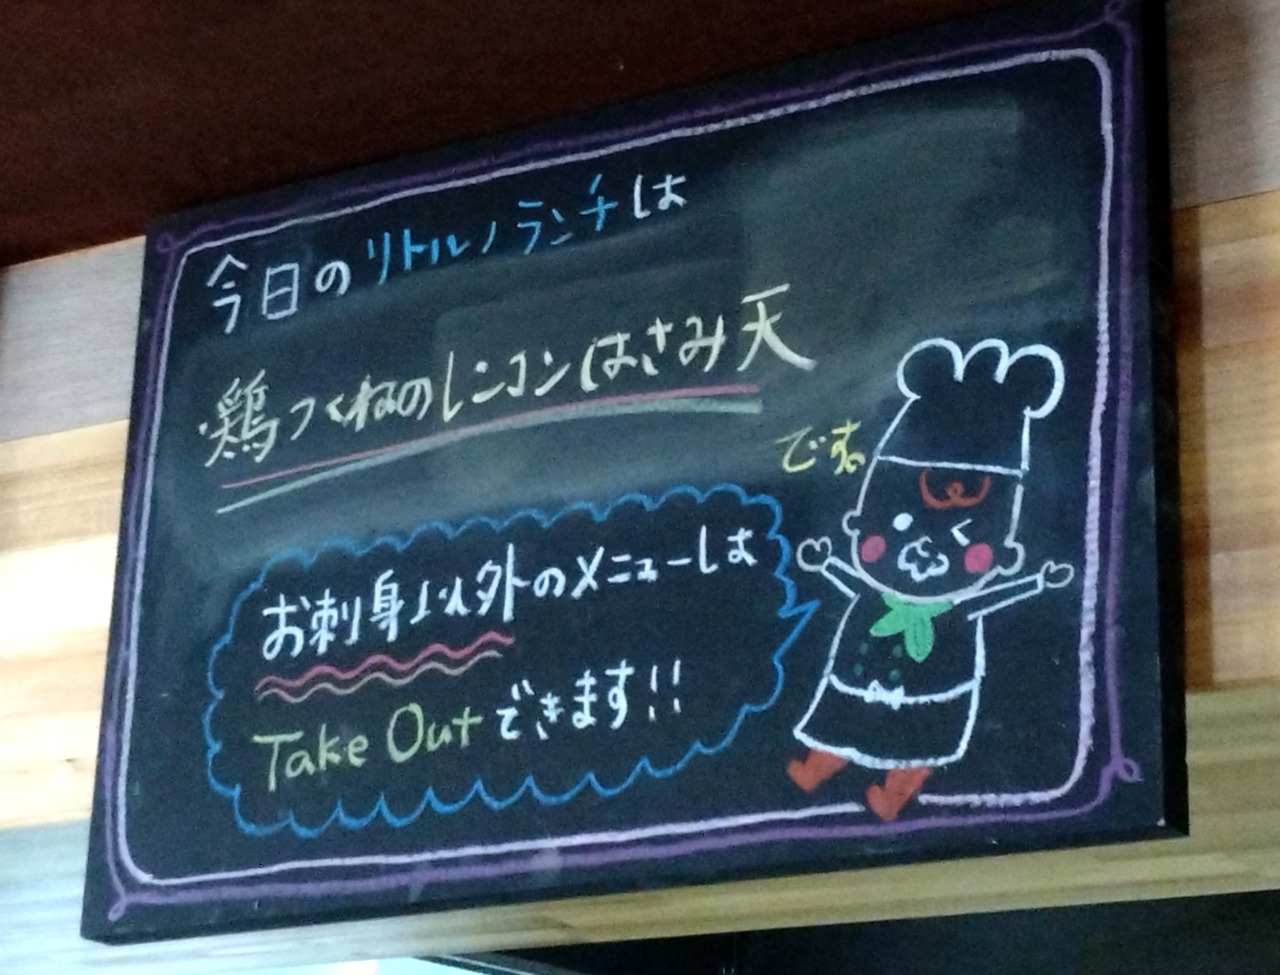 今日のリトルノランチは
鶏つくねのレンコンはさみ天
です。
お刺身以外のメニューは
Take Outできます!!